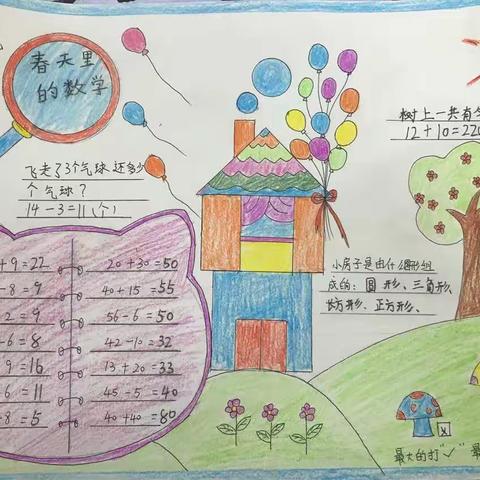 春天里
的数学
飞走了3个气球还多少
个气球?
14-3=11(个)
树上一共有
12+10=22
+9=22
-8=9
-2=9
-6=8
-9=16
-6=11
-8=5
20+30=50
40+15=55
56-6=50
42-10=32
13+20=33
45-5=40
40+40=80
小房子是由什么图形组
成的:圆形、三角形、
长方形、正方形、
最大的打"✓"最